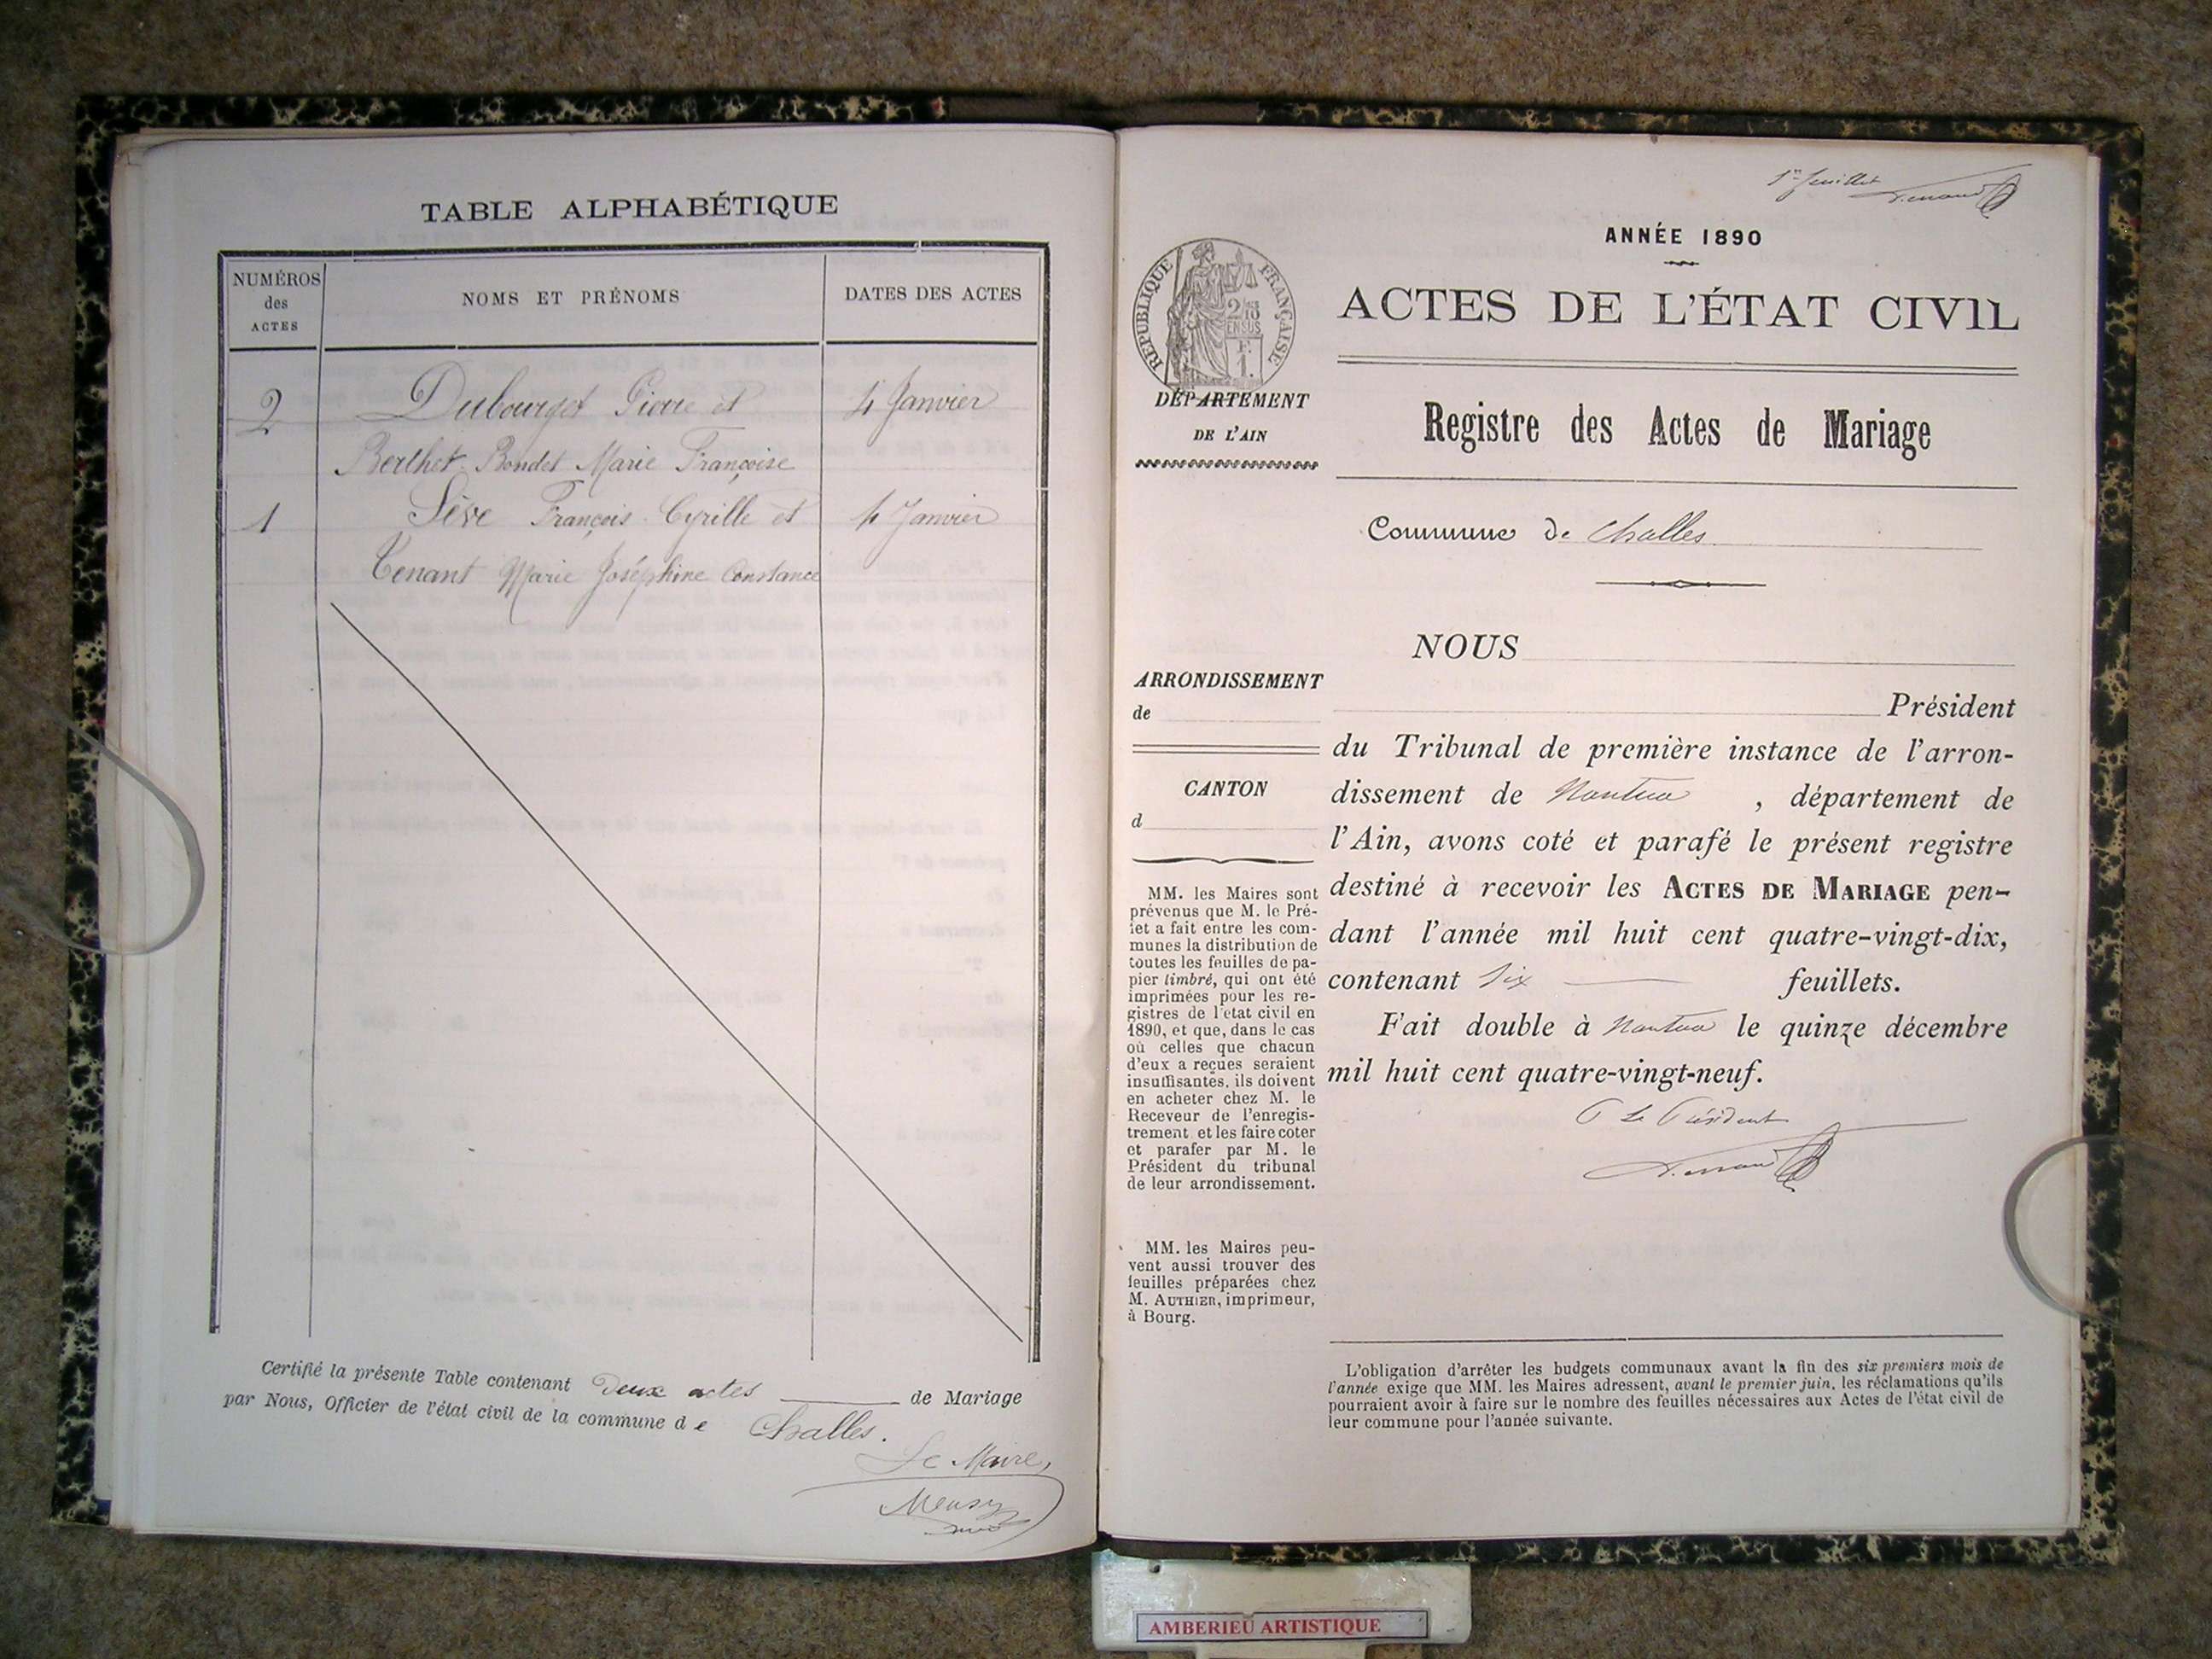 TABLE ALPHABÉTIQUE
NUMÉROS
des
ACTES
NOMS ET PRÉNOMS
DATES DES ACTES
2 Dubourget Pierre et 4 Janvier
Berthet-Bondet Marie Françoise
1 Sève François Cyrille et 4 Janvier
Tenant Marie Joséphine Constance
Certifié la présente Table contenant Deux actes de Mariage
par Nous, Officier de l'état civil de la commune de Challes.
Le Maire,
1er feuillet
ANNÉE 1890
RÉPUBLIQUE FRANÇAISE
ACTES DE L'ÉTAT CIVIL
DÉPARTEMENT
DE L'AIN
Registre des Actes de Mariage
Commune de Challes
NOUS
ARRONDISSEMENT
de
CANTON
d
MM. les Maires sont
prévenus que M. le Pré-
fet a fait entre les com-
munes la distribution de
toutes les feuilles de pa-
pier timbré, qui ont été
imprimées pour les re-
gistres de l'état civil en
1890, et que, dans le cas
où celles que chacun
d'eux a reçues seraient
insuffisantes, ils doivent
en acheter chez M. le
Receveur de l'enregis-
trement et les faire coter
et parafer par M. le
Président du tribunal
de leur arrondissement.
MM. les Maires peu-
vent aussi trouver des
feuilles préparées chez
M. AUTHIER, imprimeur,
à Bourg.
Président
du Tribunal de première instance de l'arron-
dissement de Nantua, département de
l'Ain, avons coté et parafé le présent registre
destiné à recevoir les ACTES DE MARIAGE pen-
dant l'année mil huit cent quatre-vingt-dix,
contenant six feuillets.
Fait double à Nantua le quinze décembre
mil huit cent quatre-vingt-neuf.
P Le Président
L'obligation d'arrêter les budgets communaux avant la fin des six premiers mois de
l'année exige que MM. les Maires adressent, avant le premier juin, les réclamations qu'ils
pourraient avoir à faire sur le nombre des feuilles nécessaires aux Actes de l'état civil de
leur commune pour l'année suivante.
AMBERIEU ARTISTIQUE